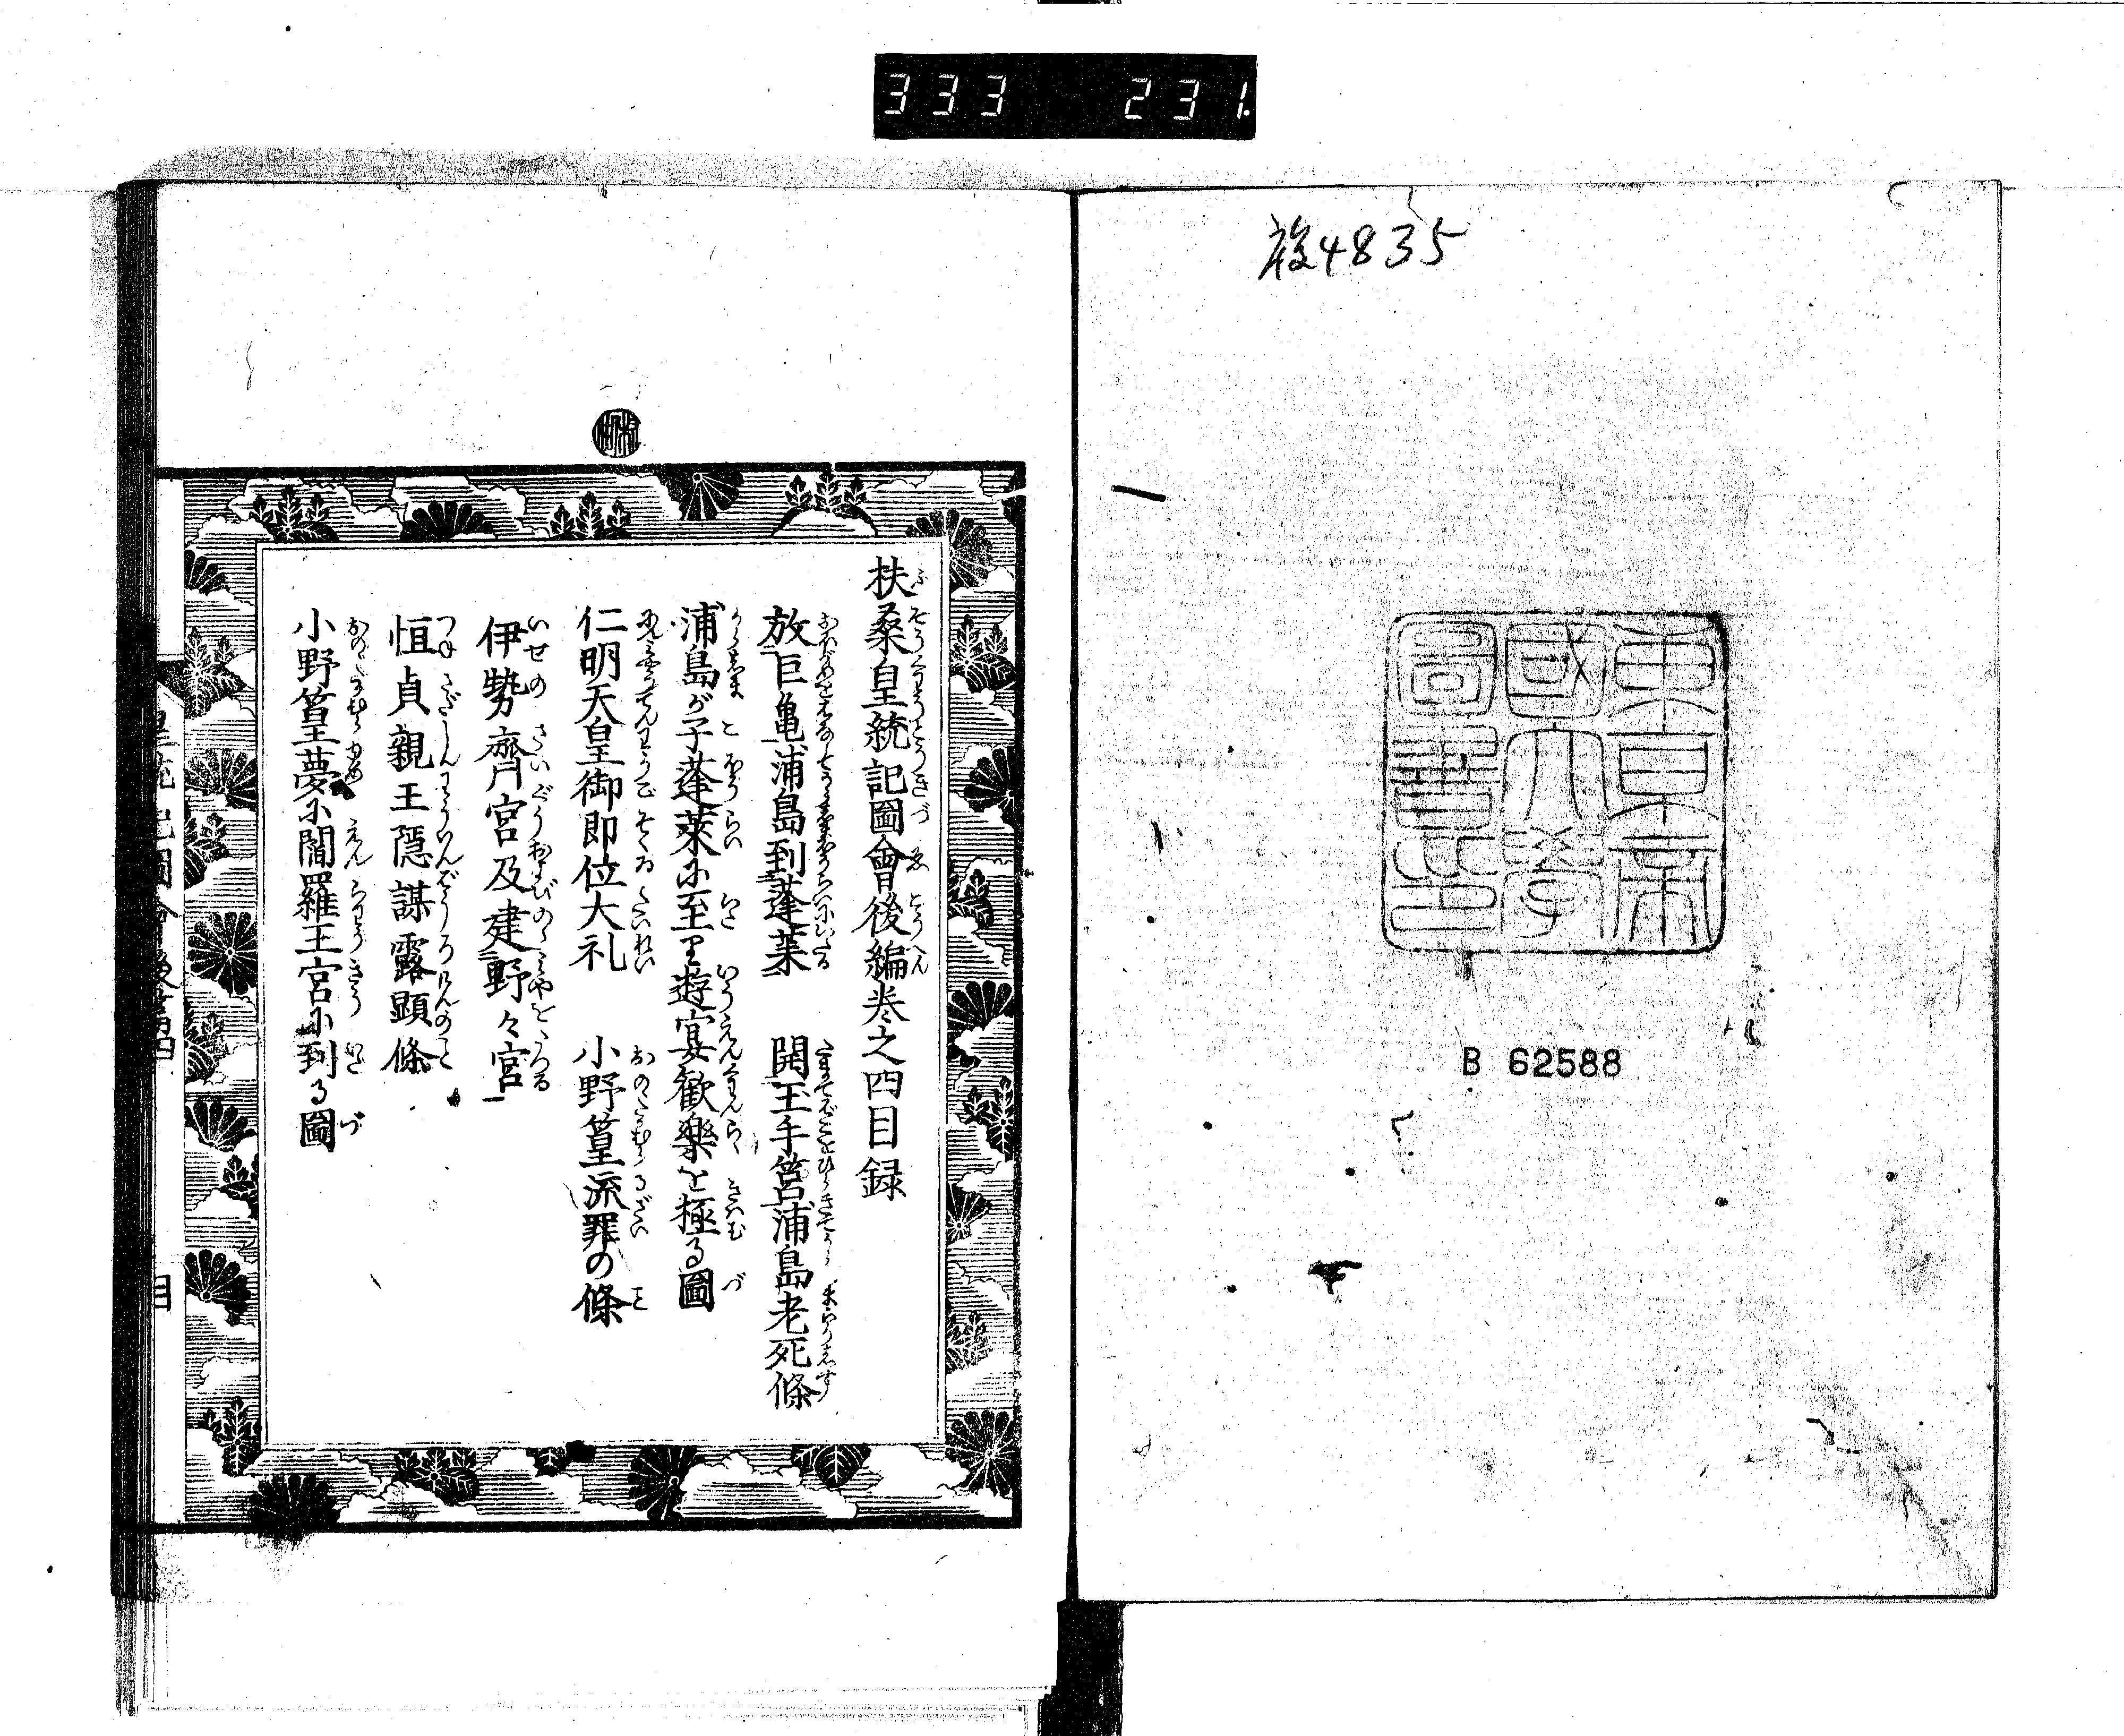 333 231.
複4835
東京帝
國大學
圖書印
B 62588
扶桑皇統記圖會後編巻之四目録
放巨亀浦島到蓬莱　開玉手筥浦島老死條
浦島が子蓬莱に至り遊宴歓楽を極る圖
仁明天皇御即位大礼　小野篁流罪の條
伊勢齊宮及建野々宮
恒貞親王隠謀露顕條
小野篁夢に閻羅王宮に到る圖